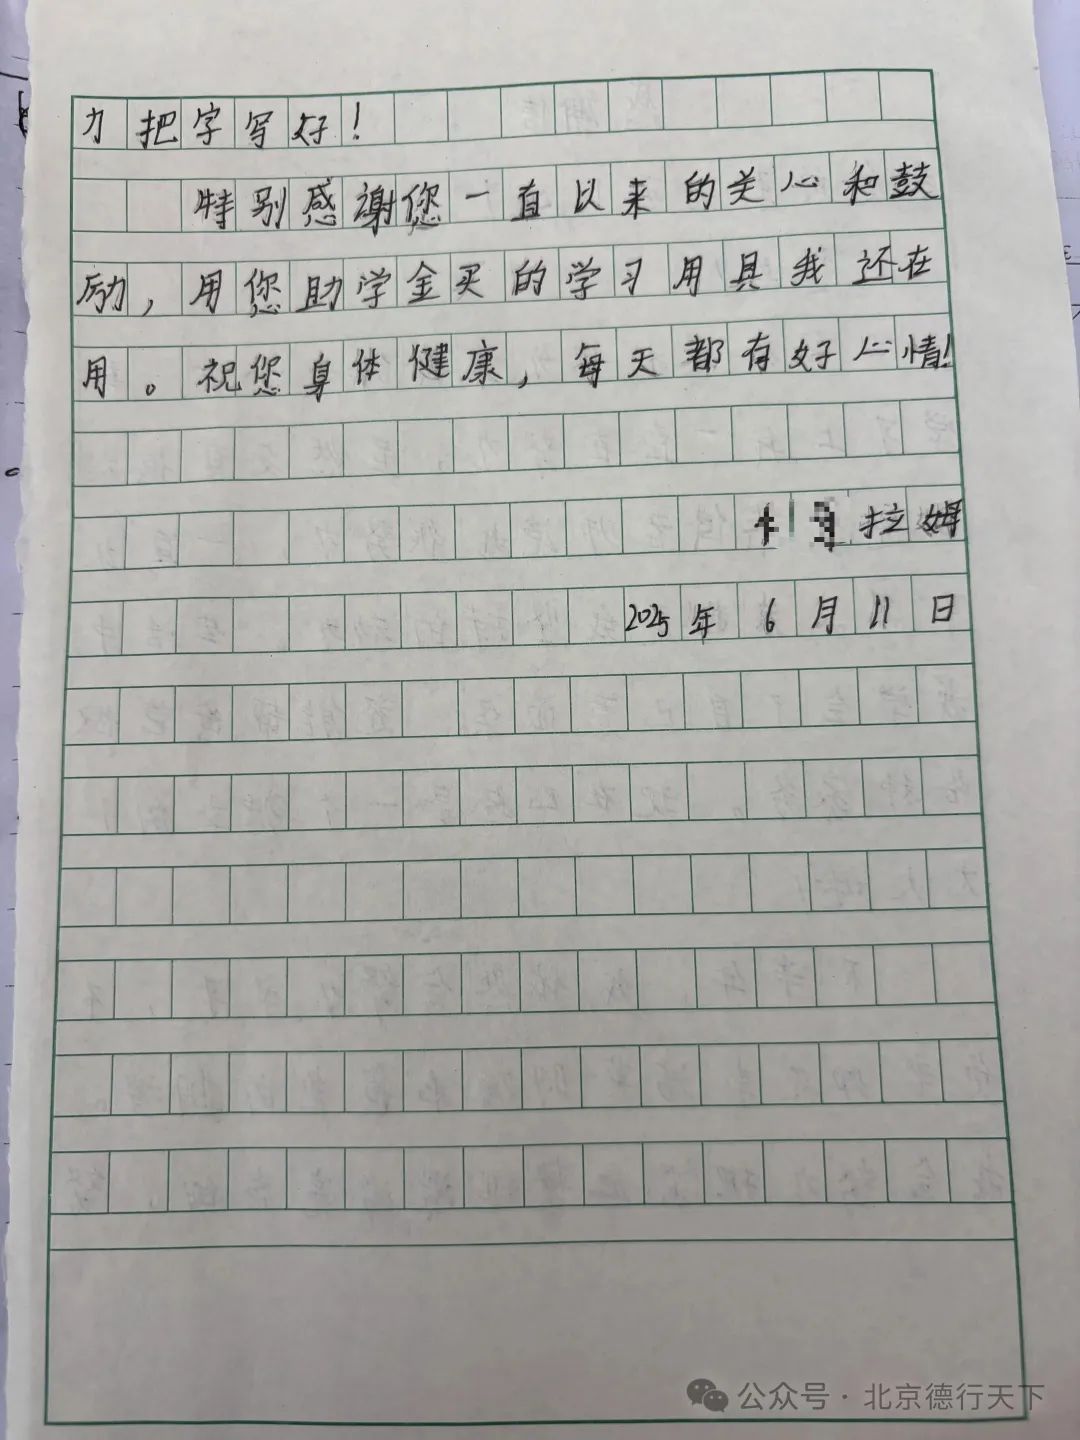 力把字写好！
特别感谢您一直以来的关心和鼓
励，用您助学金买的学习用具我还在
用。祝您身体健康，每天都有好心情！
拉姆
2025年6月11日
公众号·北京德行天下